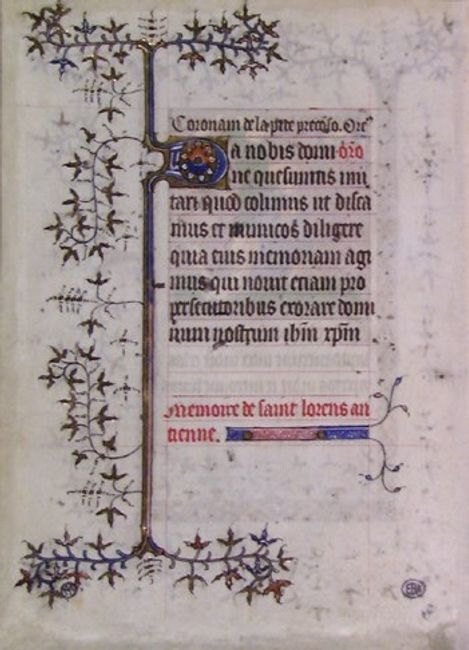 Coronam de lapide precioso. Ore
Da nobis domi oro
ne quesumus imi
tari quod colimus ut disca
mus et inimicos diligere
quia eius memoriam agi
mus qui nouit etiam pro
persecutoribus exorare domi
num nostrum ihm xpm
Memoire de saint lorens an
tienne.